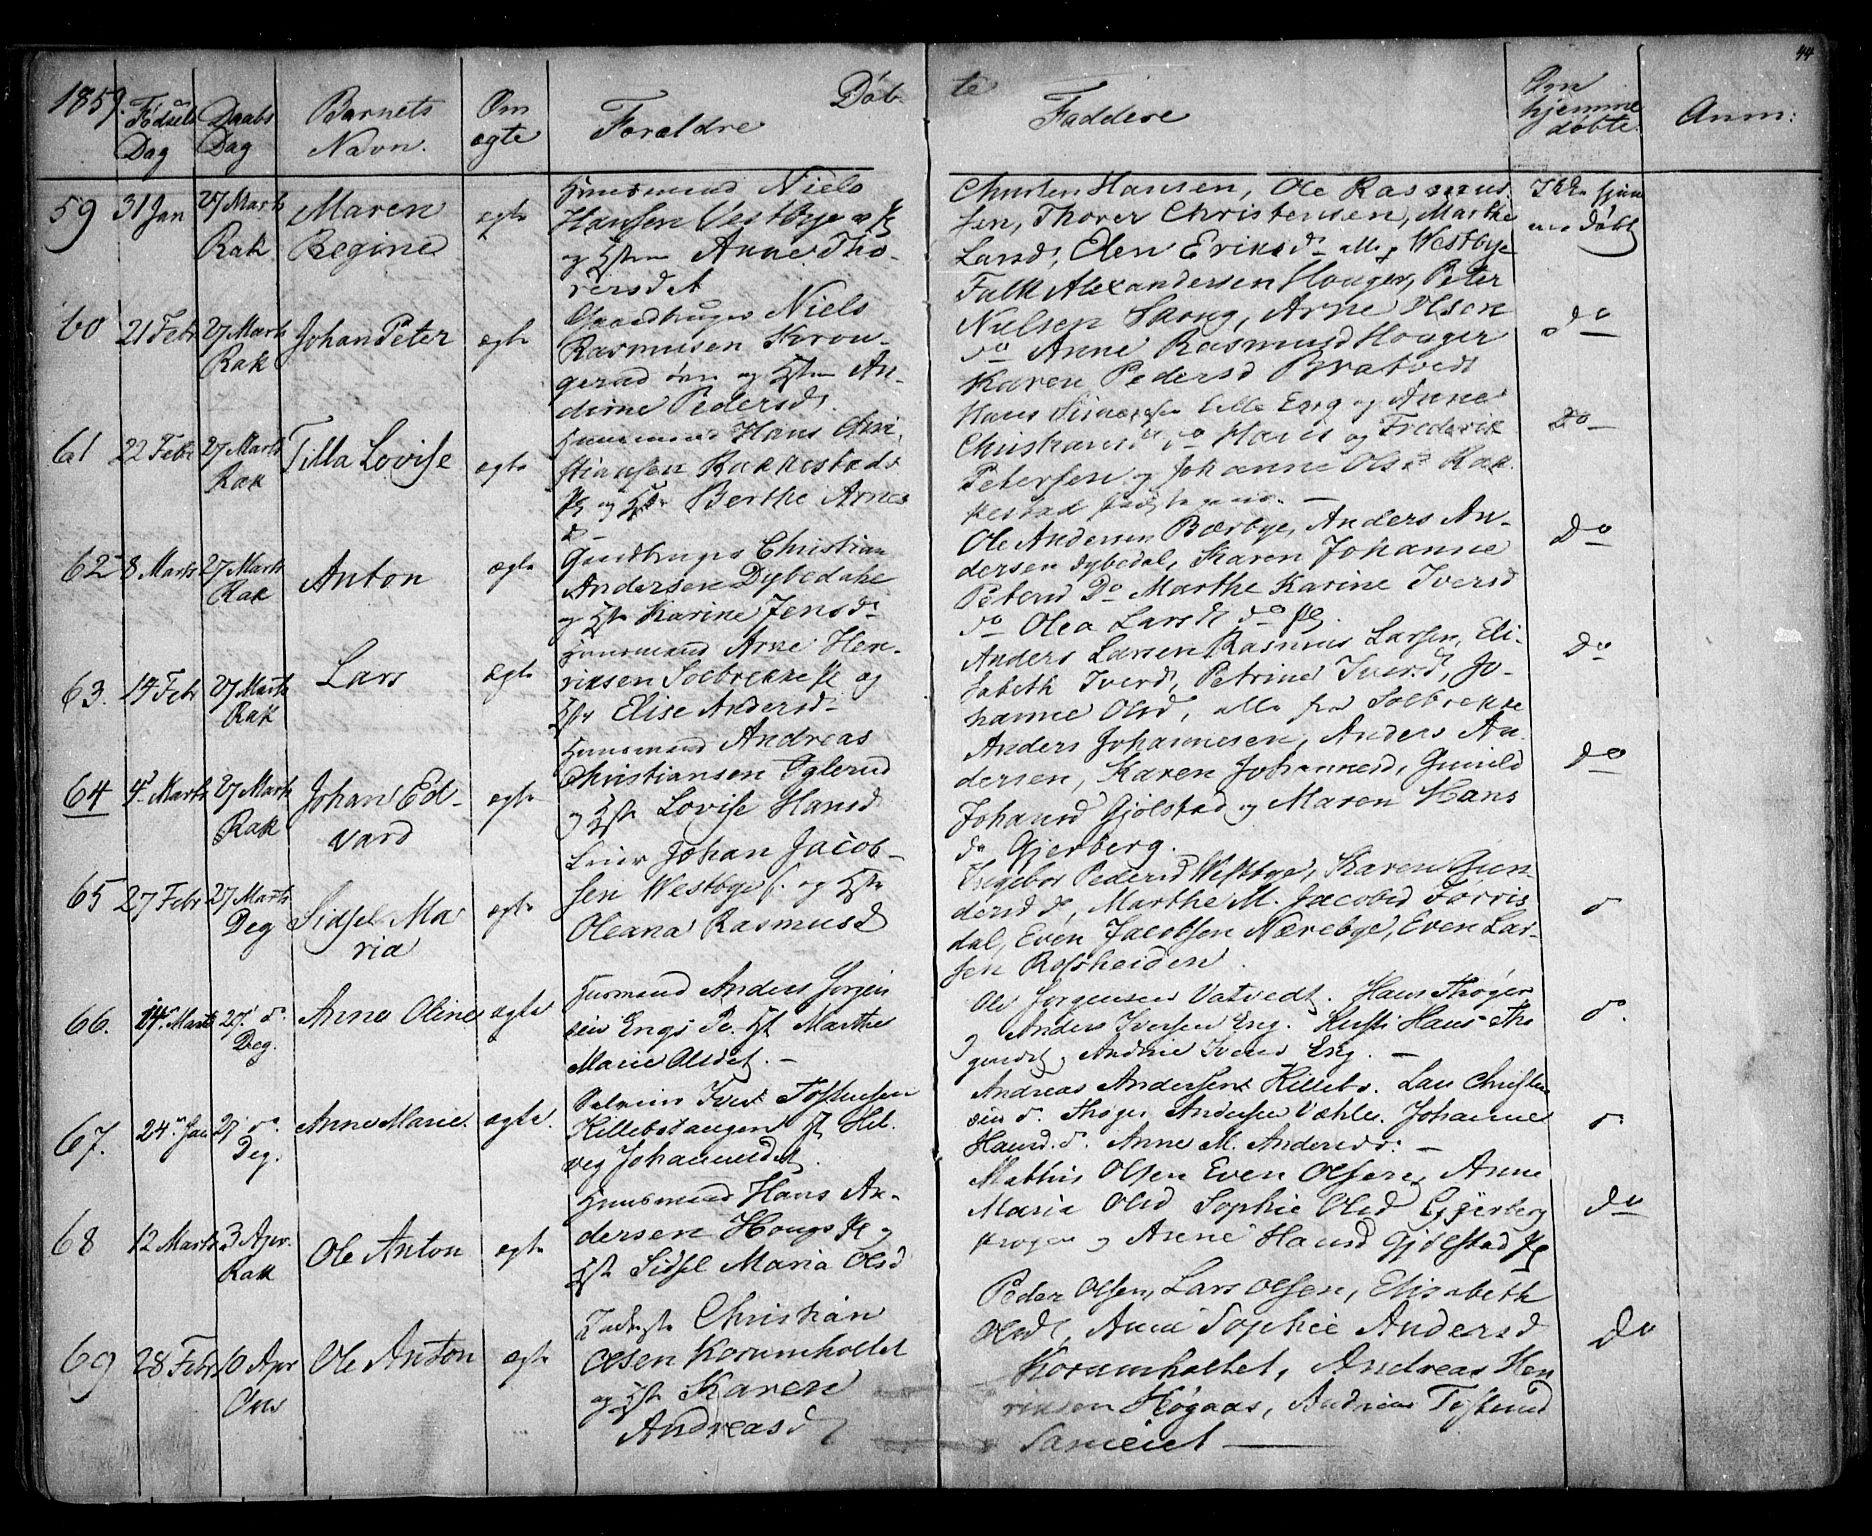 44
1859. Fødsels Dag
Daabs Dag
Barnets Navn.
Om ægte
Forældre
Døb
te
Faddere
Om hjemme døbte
Anm:
59 31 Jan 27 Marts Rak Maren Regine ægte
Huusmand Niels
Hansen Vestbye
og Hstr Anne Tho-
rersdat
Christen Hansen, Ole Rasmus
sen, Thorer Christensen, Marthe
Larsd, Elen Eriksd alle Westbye
Ikke hjem
me døbt
60 21 Febr 27 Marts Rak Johan Peter ægte
Gaardbruger Niels
Rasmusen
og Hstr An-
drine Pedersd.
Falk Alexandersen Houger, Peter
Nielsen Arne Olsen
do Anne Rasmusd Houger
Karen Pedersd Bratvedt
do
61 22 Febr 27 Marts Rak Tilla Lovise ægte
Huusmand Hans Chri
stiansen Rakkestads
og Hstr Berthe Arnes
d
Hans Lille Eng og Anne
Christians do Hans og Frederik
Petersen og Johanne Olsd Rak
kestad
Do
62 8 Marts 27 Marts Rak Anton ægte
Gaardbruger Christian
Andersen Dybedahl
og Hstr Karine Jensd
Ole Andersen Bærbye, Anders An-
dersen Dybedal, Karen Johanne
Petersd Do Marthe Karine Iversd
do Olea Larsd do
Do
63. 14 Febr 27 Marts Rak Lars ægte
Huusmand Arne Hen
riksen Solbrekke og
Hstr Elise Andersd
Anders Larsen Rasmus Larsen, Eli-
sabeth Iversd, Petrine Iversd, Jo-
hanne Olsd, alle fra Solbrekke
Do
64 4 Marts 27 Marts Rak Johan Ed-
vard ægte
Huusmand Andreas
Christiansen Oglerud
og Hstr Lovise Hansd
Anders Johannesen, Anders An
dersen, Karen Johannesd, Gunild
Johansd Gjølstad og Maren Hans
d Gjerberg.
Do
65 27 Febr 27 Marts Deg Sidsel Ma
ria ægte
Leier Johan Jacob-
sen Westbye og Hstr
Oleana Rasmusd
Ingebor Pedersd Westbye, Karen Gun
dersd do, Marthe M. Jacobsd Førris
dal, Even Jacobsen Nærebye, Even Lar-
sen Rosheiden.
d
66. 14 Marts 27. d. Deg. Anne Oline ægte
Husmand Anders Jørgen
sen Engs Hst Marthe
Marie Olsdat. —
Ole Jørgensen Vatvedt. Hans Thøger
Anders Iversen Eng.
Andrine Iversd Eng. —
d.
67. 24. Jan 27 d. Deg. Anne Marie ægte.
Iver Tostensen
Killebstangen Hst Hel
veg Johannesdat.
Andreas Andersen Killebo. Lars Christen
sen d. Thøger Andersen Væhler. Johanne
Hansd. d. Anne M. Andersd. —
d.
68 12 Marts 3 Apr. Rak Ole Anton ægte
Huusmand Hans An-
dersen Hougs og
Hstr Sidsel Maria Olsd
Mathis Olsen Even Olsen, Anne
Maria Olsd Sophie Olsd Gjerberg
krogen og Anne Hansd Gjølstad
do
69 28 Febr 10 Apr Ons Ole Anton ægte
Christian
Olsen Kornmholtet
og Hstr Karen
Andreasd
Peder Olsen, Lars Olsen, Elisabeth
Olsd, Anne Sophie Andersd
Kornmholtet, Andreas Hen
riksen Høgaas, Andrine
Sameiet —
Do